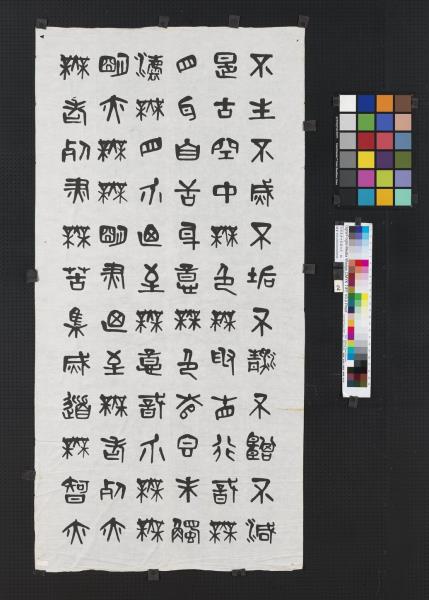 不生不滅不垢不淨不增不減
是故空中無色無受想行識無
眼耳鼻舌身意無色聲香味觸
法無眼界乃至無意識界無無
明亦無無明盡乃至無老死亦
無老死盡無苦集滅道無智亦